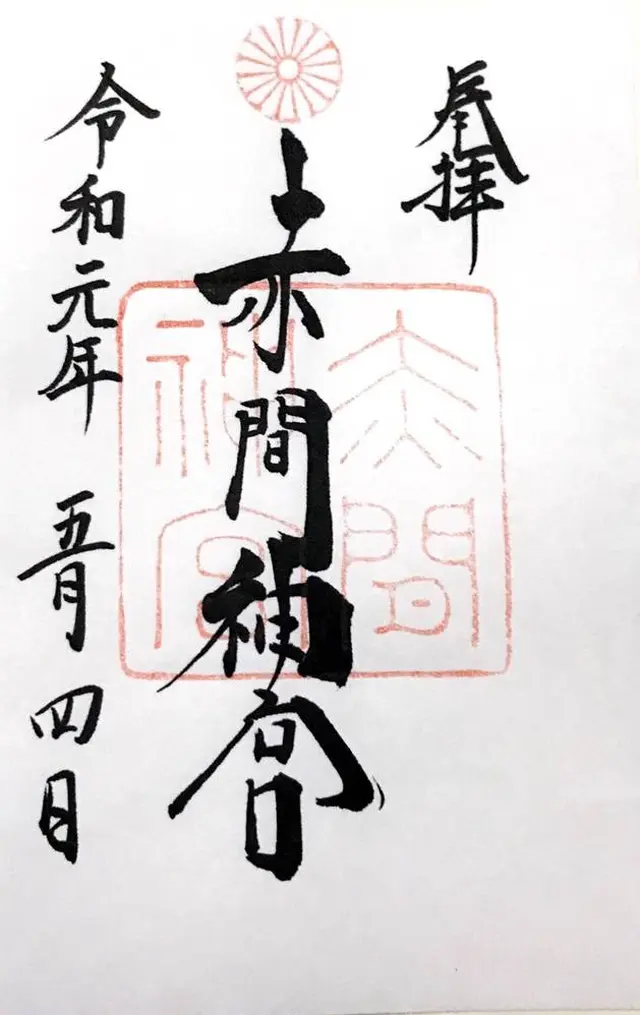 奉拝
赤間神宮
赤間神宮
令和元年 五月 四日